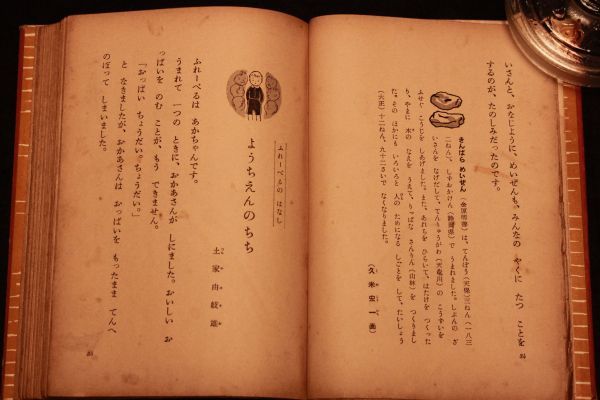 いさんと、おなじように、めいぜんも、みんなの やくに たつ ことを
するのが、たのしみだったのです。
きんばら めいぜん（金原明善）は、てんぽう（天保）三ねん（一八三
二ねん）、しずおかけん（静岡県）で うまれました。じぶんの ざ
いさんを なげだして、てんりゅうがわ（天竜川）の こうずいを
ふせぐ こうじを しあげました。また、あれちを ひらいて、はたけを つくった
り、やまに 木の なえを うえて、りっぱな さんりん（山林）を つくりまし
た。その ほかにも いろいろと 人の ために なる しごとを して、たいしょう
（大正）十二ねん、九十二さいで なくなりました。
（久米宏一画）
34
ふれーべるの はなし
ようちえんのちち
土家由岐雄
ふれーべるは あかちゃんです。
うまれて 一つの ときに、おかあさんが しにました。おいしい お
っぱいを のむ ことが、もう できません。
「おっぱい ちょうだい。ちょうだい。」
と なきましたが、おかあさんは おっぱいを もったまま てんへ
のぼって しまいました。
35